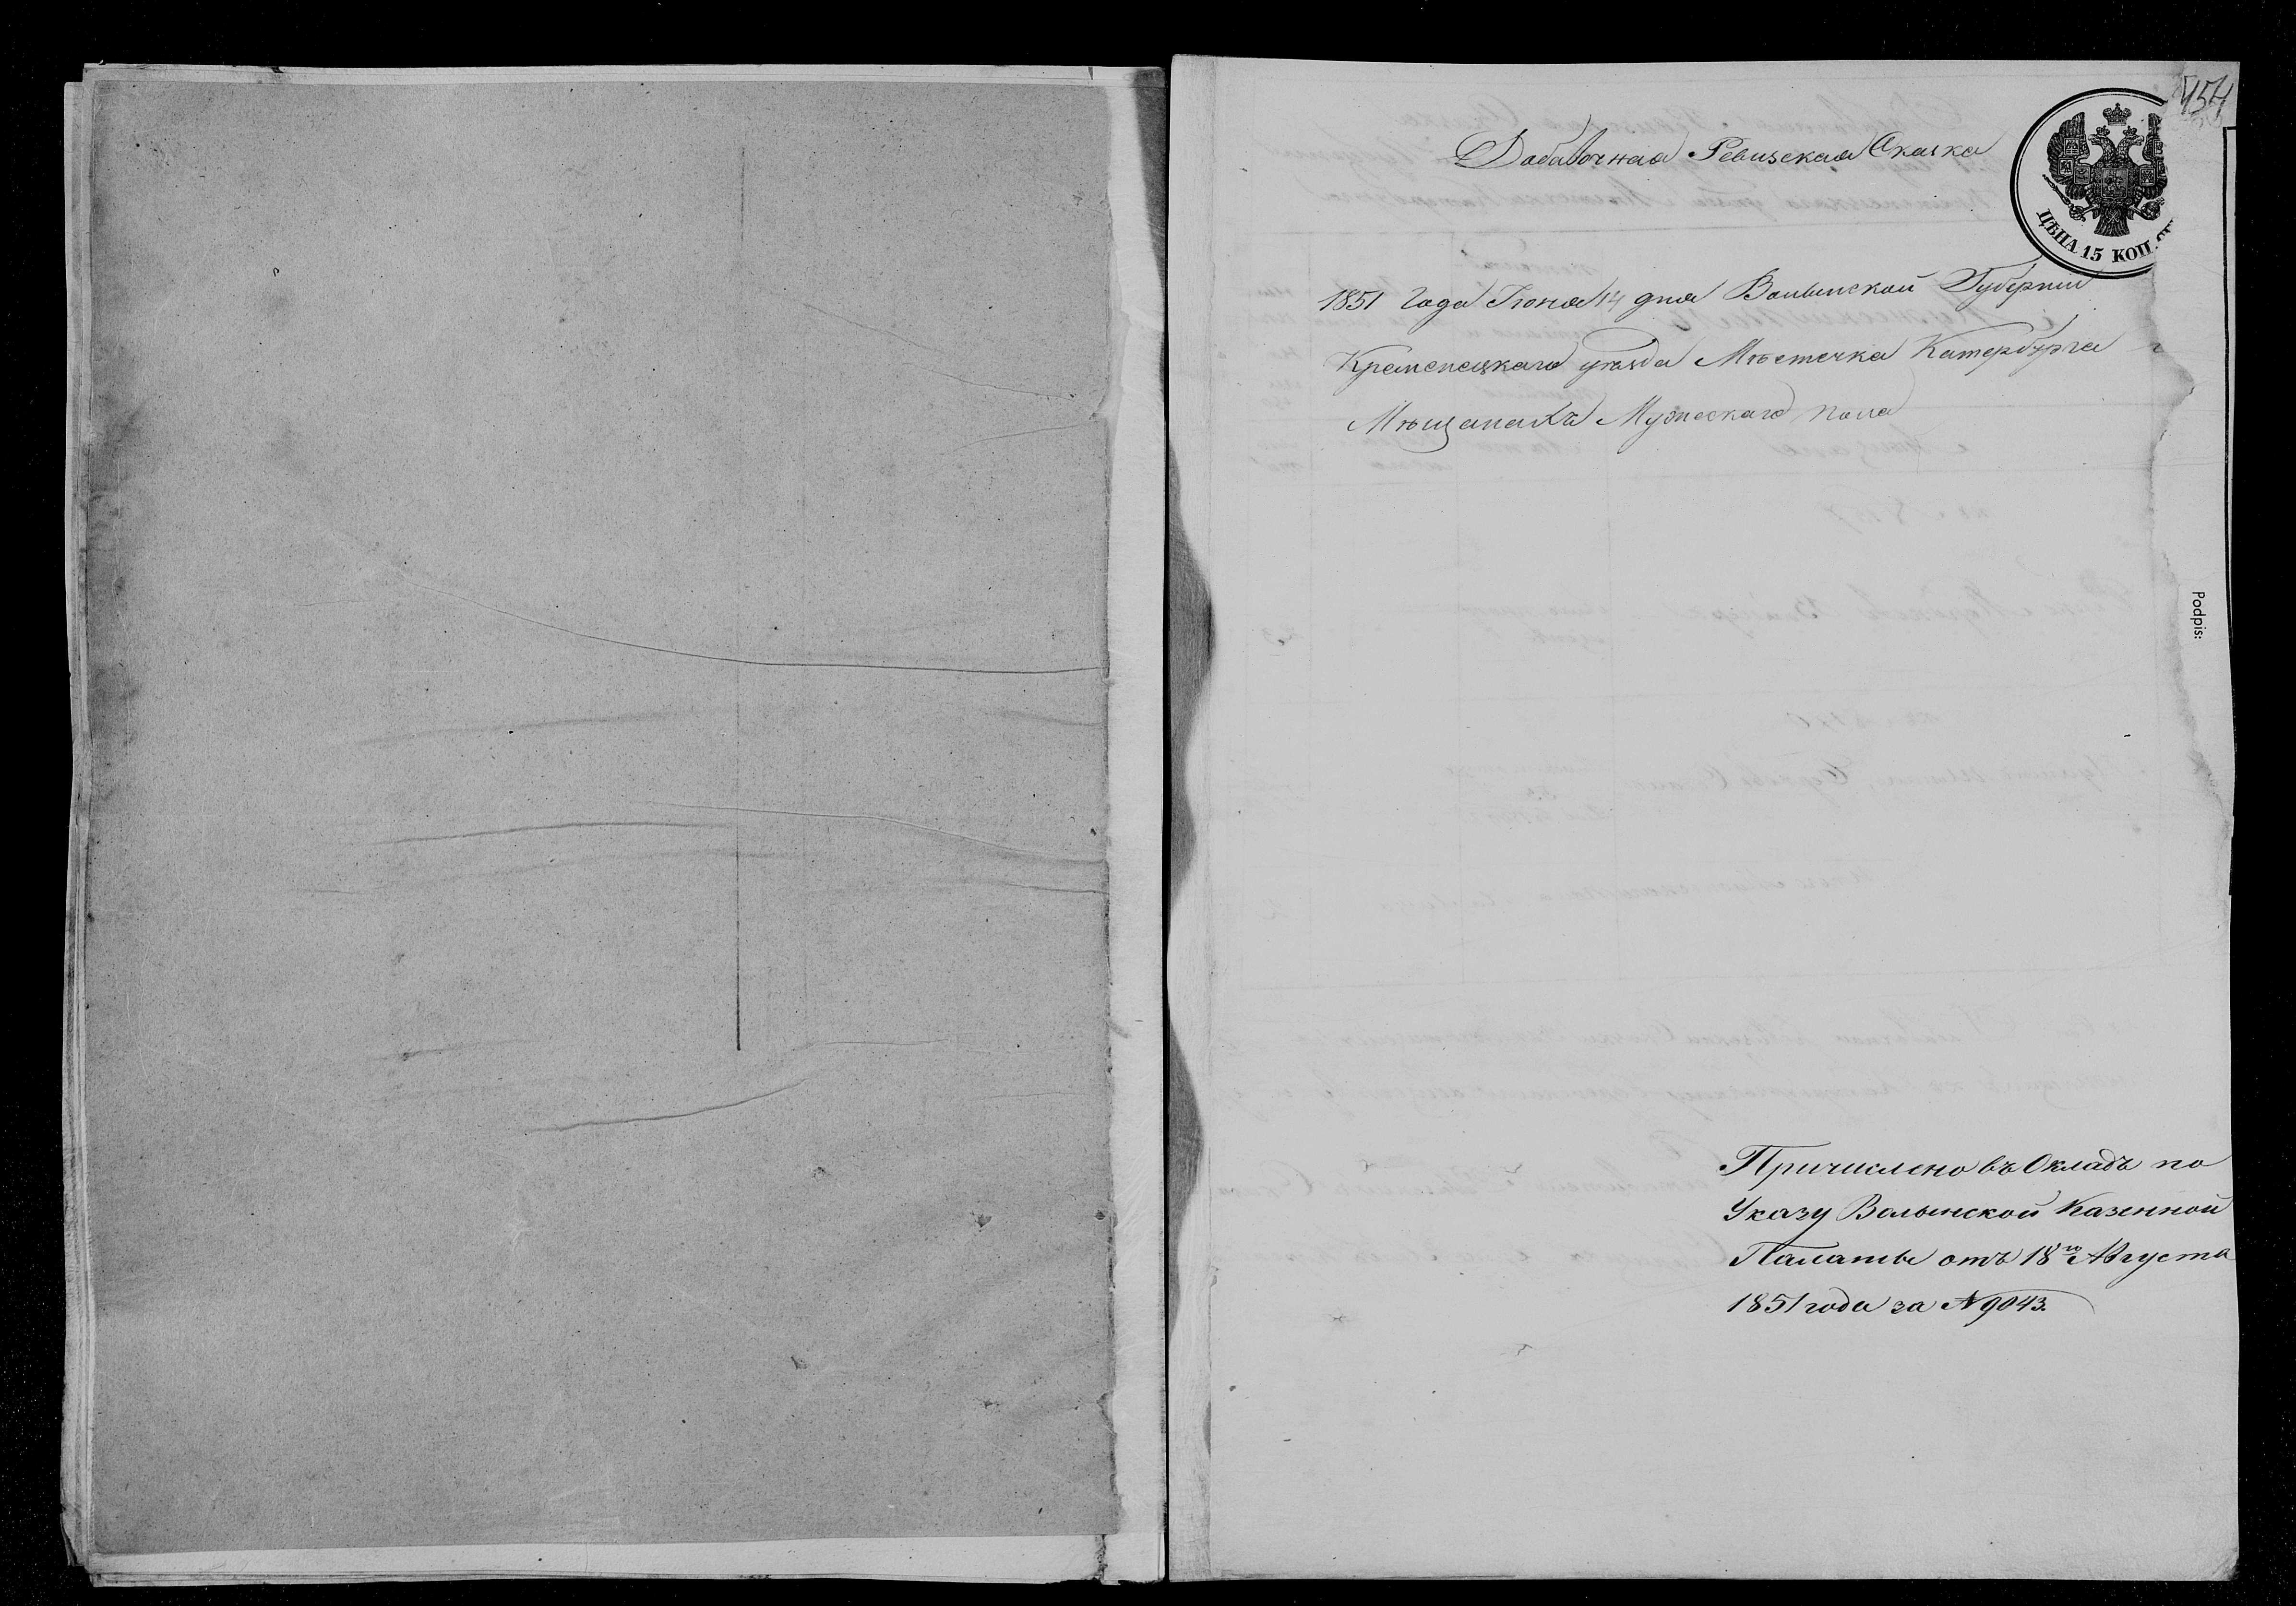 454
Добавочная Ревизская Сказка
ЦѢНА 15 КОП.
1851 Года Іюня 14 дня Волынской Губерніи
Кременецкаго уѣзда Мѣстечка Катербурга
Мѣщанахъ Мужескаго пола
Podpis:
Причислено въ Окладъ по
Указу Волынской Казенной
Палаты отъ 18го Августа
1851 года за N 9043.